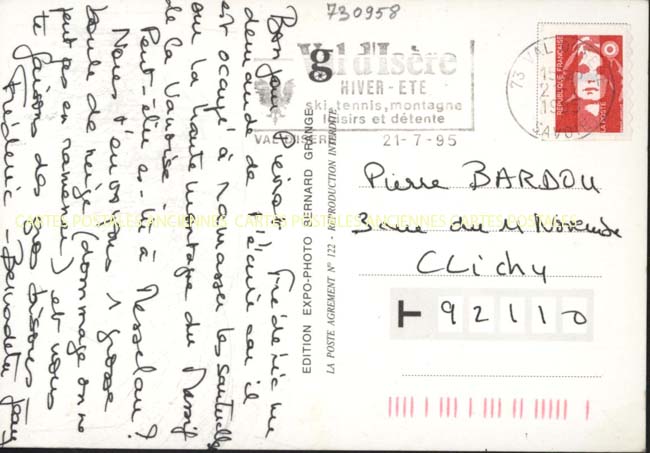 730958
Val d'Isère
HIVER - ETE
ski, tennis, montagne
loisirs et détente
VAL D'ISERE
21-7-95
REPUBLIQUE FRANCAISE
LA POSTE
Bonjour Pierrot! Frédéric me
demande de t'écrire car il
est occupé à ramasser les
sur la haute montagne du Massif
de la Vanoise.
Peut-être es-tu à Messelan?
Nous t'envoyons 1 grosse
boule de neige (dommage on ne
peut pas en ramener) et nous
te faisons des gros bisous
Frédéric - Bernadette
EDITION EXPO-PHOTO BERNARD GRANGE
LA POSTE AGREMENT N° 122 - REPRODUCTION INTERDITE
Pierre BARDOU
rue du 11 Novembre
CLichy
T 92110
CARTES POSTALES ANCIENNES CARTES POSTALES ANCIENNES CARTES POSTALES